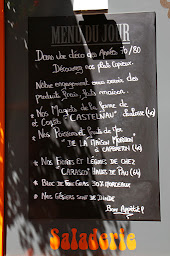 MENU DU JOUR
Dans une déco des Années 70/80
Découvrez nos plats copieux.
Notre engagement sous vide des
produits frais, faits maison.
* Nos Magrets de la ferme de
et Cogots "CASTELNAU" (40)
* Nos Poissons et fruits de Mer
DE "LA MAISON
à CAPBRETON (40)
* Nos Fruits et Légumes de chez
"CARASSO" HALLES DE PAU (64)
* Bloc de Foie Gras 30% MORCEAUX
* Nos Gésiers sont de DINDE
Bon Appétit !
Saladerie